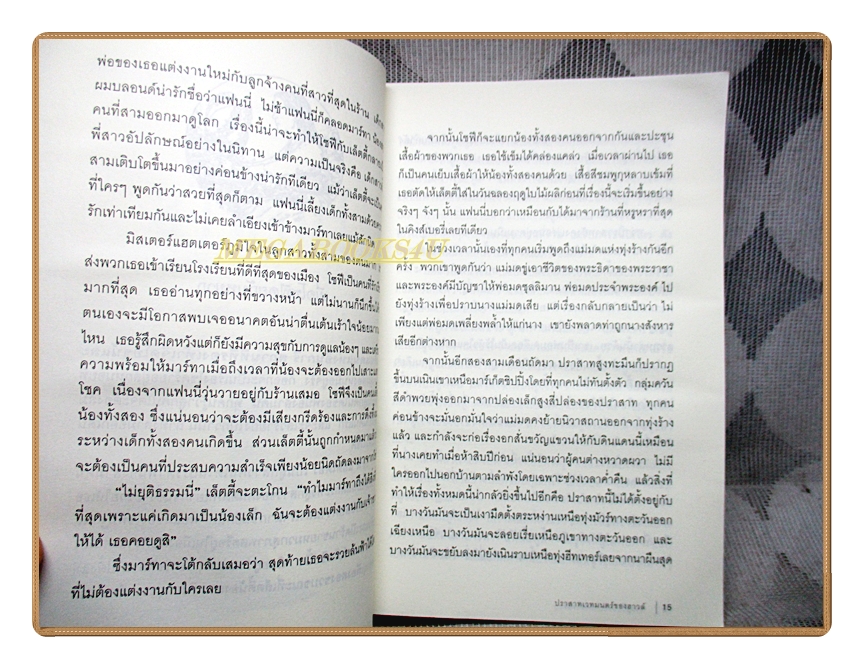 พ่อของเธอแต่งงานใหม่กับลูกจ้างคนที่สาวที่สุดในร้าน
ผมบลอนด์น่ารักชื่อว่าแฟนนี่ ไม่ช้าแฟนนี่ก็คลอดมาร์ทา
คนที่สามออกมาดูโลก เรื่องนี้น่าจะทำให้โซฟีกับเล็ตตี้
พี่สาวอัปลักษณ์อย่างในนิทาน แต่ความเป็นจริงคือ
สามเติบโตขึ้นมาอย่างค่อนข้างน่ารักทีเดียว แม้ว่าเล็ตตี้จะ
ที่ใครๆ พูดกันว่าสวยที่สุดก็ตาม แฟนนี่เลี้ยงเด็กทั้งสามด้วย
รักเท่าเทียมกันและไม่เคยลำเอียงเข้าข้างมาร์ทาเลย
มิสเตอร์แฮตเตอร์ภูมิใจในลูกสาวทั้งสามของตน
ส่งพวกเธอเข้าเรียนโรงเรียนที่ดีที่สุดของเมือง โซฟีเป็นคนที่
มากที่สุด เธออ่านทุกอย่างที่ขวางหน้า แต่ไม่นานก็นึกขึ้น
ตนเองจะมีโอกาสพบเจออนาคตอันน่าตื่นเต้นเร้าใจน้อย
ไหน เธอรู้สึกผิดหวังแต่ก็ยังมีความสุขกับการดูแลน้องๆ
ความพร้อมให้มาร์ทาเมื่อถึงเวลาที่น้องจะต้องออกไป
โชค เนื่องจากแฟนนี่วุ่นวายอยู่กับร้านเสมอ โซฟีจึงเป็นคน
น้องทั้งสอง ซึ่งแน่นอนว่าจะต้องมีเสียงกรีดร้องและการ
ระหว่างเด็กทั้งสองคนเกิดขึ้น ส่วนเล็ตตี้นั้นถูกกำหนดมา
จะต้องเป็นคนที่ประสบความสำเร็จเพียงน้อยนิดถัดลงมา
"ไม่ยุติธรรมนี่" เล็ตตี้จะตะโกน "ทำไมมาร์ทาถึงได้
ที่สุดเพราะแค่เกิดมาเป็นน้องเล็ก ฉันจะต้องแต่งงานกับ
ให้ได้ เธอคอยดูสิ"
ซึ่งมาร์ทาจะโต้กลับเสมอว่า สุดท้ายเธอจะรวยล้นฟ้า
ที่ไม่ต้องแต่งงานกับใครเลย
MEGABOOKS4U
จากนั้นโซฟีก็จะแยกน้องทั้งสองคนออกจากกันและปะชุน
เสื้อผ้าของพวกเธอ เธอใช้เข็มได้คล่องแคล่ว เมื่อเวลาผ่านไป เธอ
ก็เป็นคนเย็บเสื้อผ้าให้น้องทั้งสองคนด้วย เสื้อสีชมพูกุหลาบเข้มที่
เธอตัดให้เล็ตตี้ใส่ในวันฉลองฤดูใบไม้ผลิก่อนที่เรื่องนี้จะเริ่มขึ้นอย่าง
จริงๆ จังๆ นั้น แฟนนี่บอกว่าเหมือนกับได้มาจากร้านที่หรูหราที่สุด
ในคิงส์เบอรี่เลยทีเดียว
ในช่วงเวลานั้นเองที่ทุกคนเริ่มพูดถึงแม่มดแห่งทุ่งร้างกันอีก
ครั้ง พวกเขาพูดกันว่า แม่มดขู่เอาชีวิตของพระธิดาของพระราชา
และพระองค์มีบัญชาให้พ่อมดซูลลิมาน พ่อมดประจำพระองค์ ไป
ยังทุ่งร้างเพื่อปราบนางแม่มดเสีย แต่เรื่องกลับกลายเป็นว่า ไม่
เพียงแต่พ่อมดเพลี่ยงพล้ำให้แก่นาง เขายังพลาดท่าถูกนางสังหาร
เสียอีกต่างหาก
จากนั้นอีกสองสามเดือนถัดมา ปราสาทสูงทะมึนก็ปรากฏ
ขึ้นบนเนินเขาเหนือมาร์เก็ตชิปปิ้งโดยที่ทุกคนไม่ทันตั้งตัว กลุ่มควัน
สีดำพวยพุ่งออกมาจากปล่องเล็กสูงสี่ปล่องของปราสาท ทุกคน
ค่อนข้างจะมั่นอกมั่นใจว่าแม่มดคงย้ายนิวาสถานออกจากทุ่งร้าง
แล้ว และกำลังจะก่อเรื่องอกสั่นขวัญแขวนให้กับดินแดนนี้เหมือน
ที่นางเคยทำเมื่อห้าสิบปีก่อน แน่นอนว่าผู้คนต่างหวาดผวา ไม่มี
ใครออกไปนอกบ้านตามลำพังโดยเฉพาะช่วงเวลาค่ำคืน แล้วสิ่งที่
ทำให้เรื่องทั้งหมดนี้น่ากลัวยิ่งขึ้นไปอีกคือ ปราสาทนี้ไม่ได้ตั้งอยู่กับ
ที่ บางวันมันจะเป็นเงามืดตั้งตระหง่านเหนือทุ่งมัวร์ทางตะวันออก
เฉียงเหนือ บางวันมันจะลอยเรี่ยเหนือภูเขาทางตะวันออก และ
บางวันมันจะขยับลงมายังเนินราบเหนือทุ่งฮีทเทอร์เลยจากนาผืนสุด
ปราสาทเวทมนตร์ของฮาวล์ 15